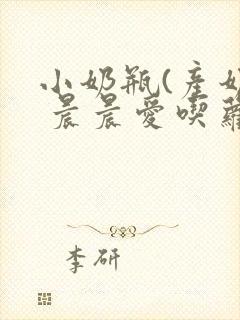 小奶瓶(產奶
晨晨愛喫蘿
李研